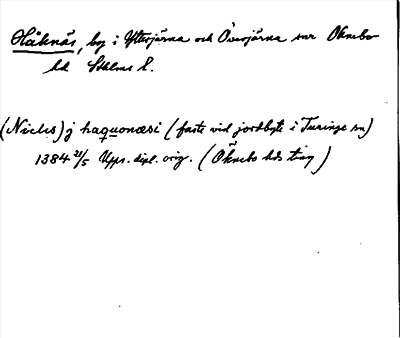 Håknäs, by i Ytterjärna och Överjärna snr Öknebo
hd Sthlms l.
(Nichis) j haquonæsi (faste vid jordbyte i Turinge sn)
1384 21/5 Upps. dipl. orig. (Öknebo hds ting)